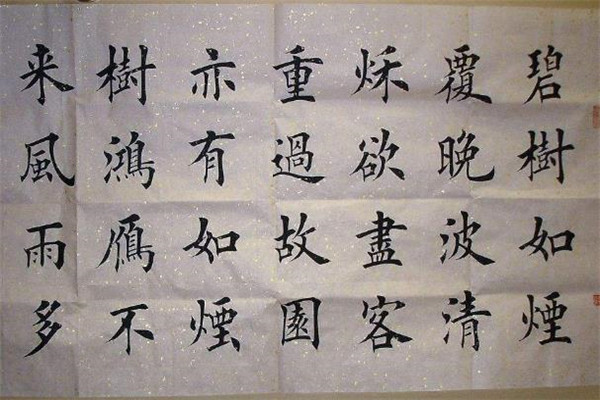 碧樹如煙
覆晚波清
秌欲盡客
重過故園
亦有如煙
樹鴻鴈不
来風雨多